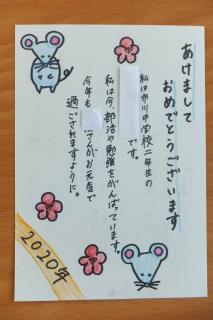 あけまして
おめでとうございます
私は市川中学校二年生の
です。
私は今、部活や勉強をがんばっています。
今年も
さんがお元気で
過ごされますように。
2020年